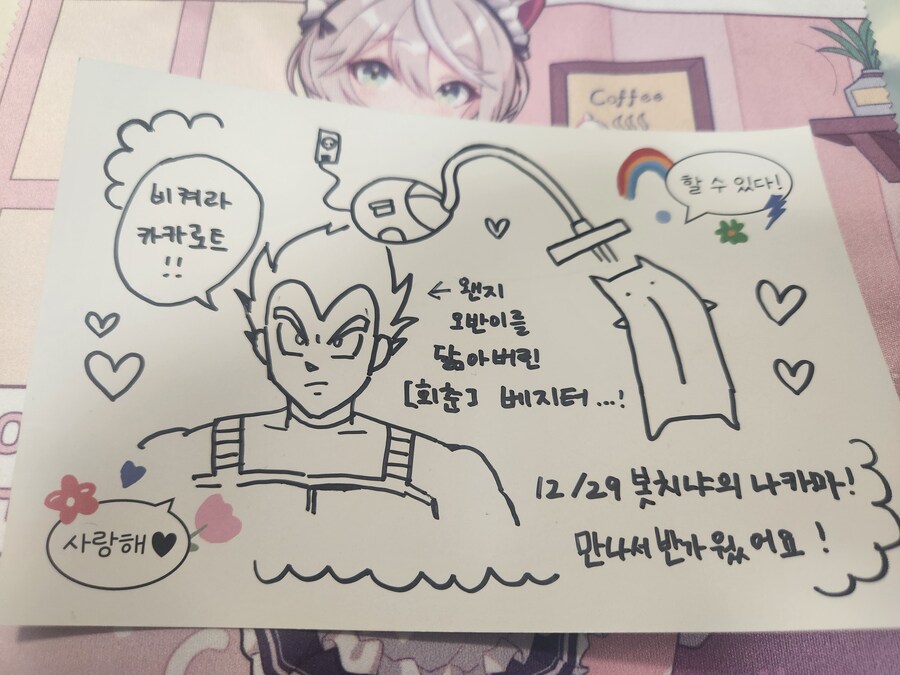 Coffee
비켜라
카카로트
!!
할 수 있다!
← 왠지
오반이를
닮아버린
[회춘] 베지터...!
12/29 봇치냐의 나카마!
만나서 반가웠어요!
사랑해♥